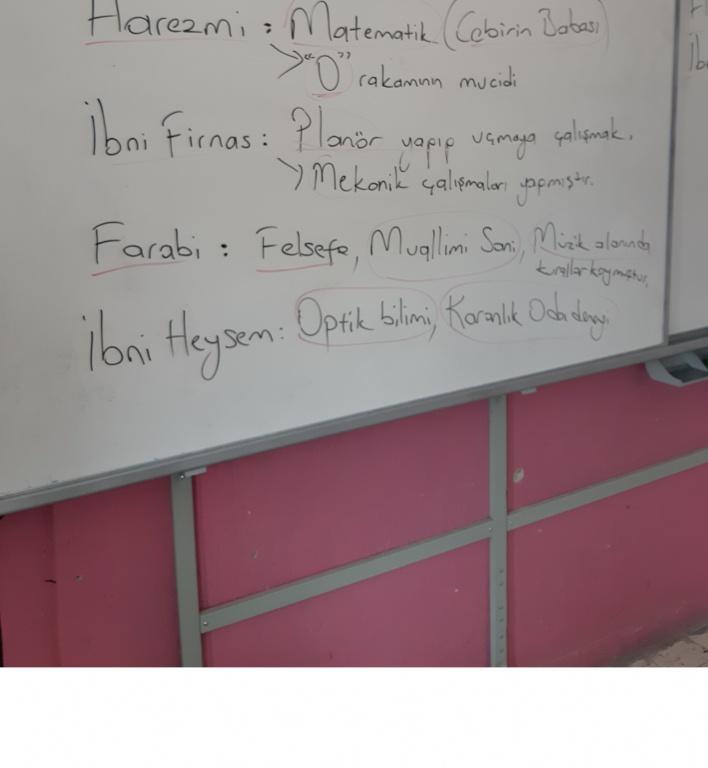 Harezmi : Matematik (Cebirin Babası)
> "0" rakamının mucidi
İbni Firnas : Planör yapıp uçmaya çalışmak.
> Mekanik çalışmaları yapmıştır.
Farabi : Felsefe, Muallimi Sani, Müzik alanında
kurallar koymuştur.
İbni Heysem: Optik bilimi, Karanlık Oda deneyi